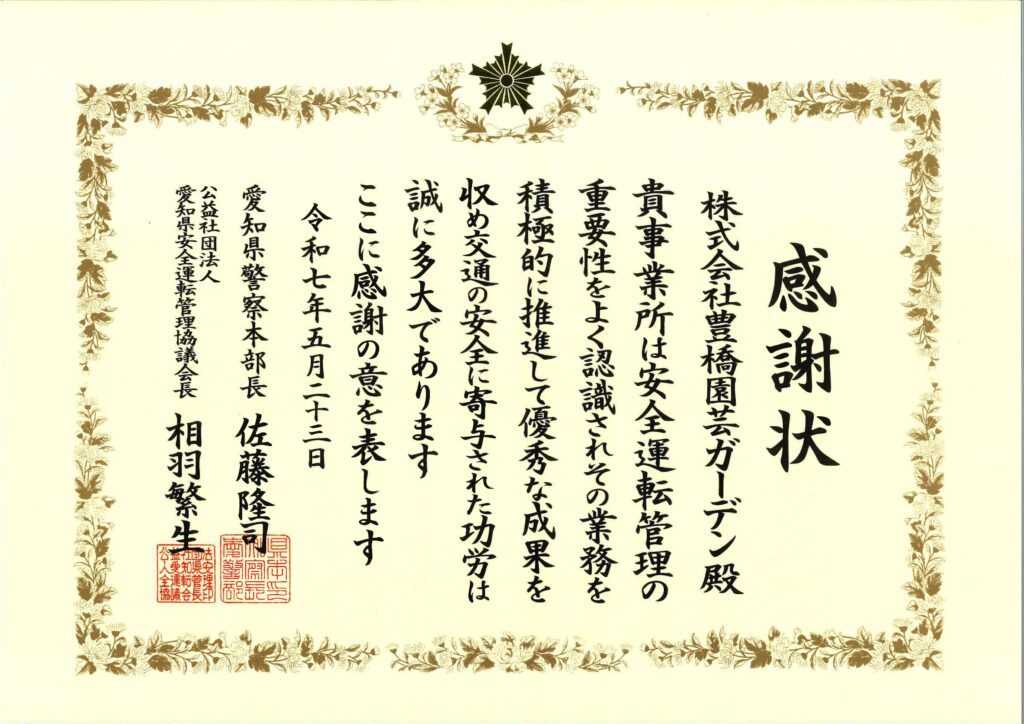 感謝状
株式会社豊橋園芸ガーデン殿
貴事業所は安全運転管理の
重要性をよく認識されその業務を
積極的に推進して優秀な成果を
収め交通の安全に寄与された功労は
誠に多大であります
ここに感謝の意を表します
令和七年五月二十三日
愛知県警察本部長 佐藤隆司
公益社団法人
愛知県安全運転管理協議会長 相羽繁生